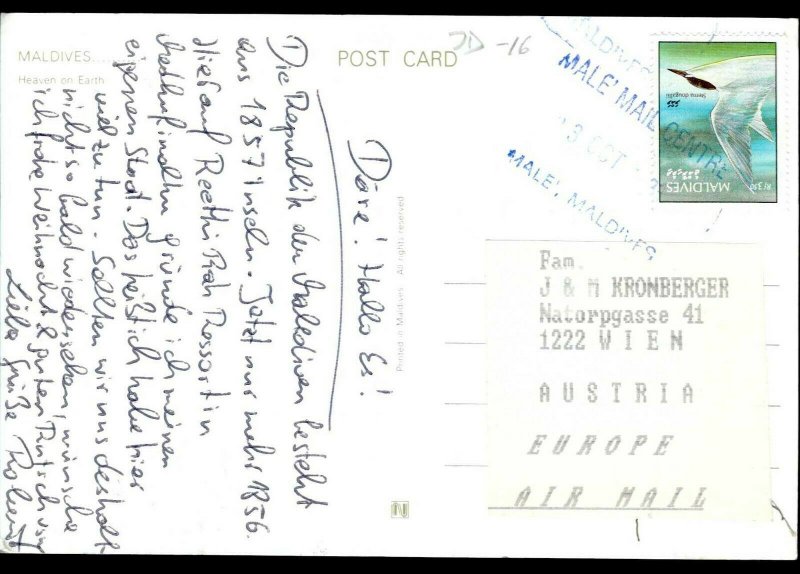 MALDIVES....
Heaven on Earth
POST CARD
JD -16
MALDIVES
MALE' MAIL CENTRE
3 OCT
MALE', MALDIVES
Sterna dougallii
MALDIVES
Rf 3.50
Printed in Maldives All rights reserved
N
Fam.
J & M KRONBERGER
Natorpgasse 41
1222 WIEN
AUSTRIA
EUROPE
AIR MAIL
! Hallo
Die Republik der Malediven besteht
aus 1857 Inseln. Jetzt nur mehr 1856.
dort auf Reethi Rah Ressort in
gründe ich meinen
eigenen Staat. Das heißt, ich habe hier
viel zu tun. Sollten wir uns deshalb
nicht so bald wiedersehen, wünsche
ich frohe Weihnacht & guten Rutsch
Liebe Grüße